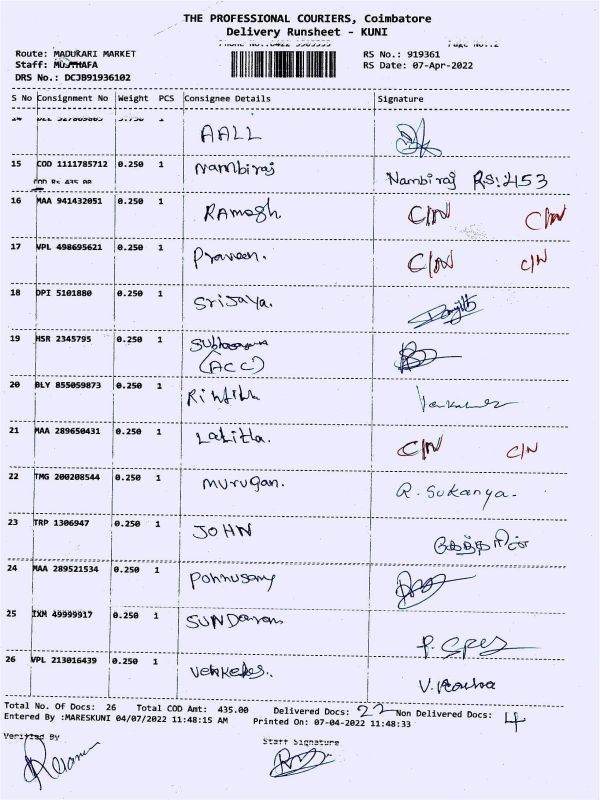 THE PROFESSIONAL COURIERS, Coimbatore
Delivery Runsheet - KUNI
Route: MADUKARI MARKET
RS No.: 919361
Staff: MUJTHAFA
RS Date: 07-Apr-2022
DRS No.: DCJB91936102
S No Consignment No Weight PCS Consignee Details Signature
14 1 AALL
15 COD 1111785712 0.250 1 Nambiraj Nambiraj RS:453
COD Rs 435.00
16 MAA 941432051 0.250 1 RAmesh C/N C/N
17 VPL 498695621 0.250 1 Praveen. C/N C/N
18 DPI 5101880 0.250 1 Srijaya.
19 HSR 2345795 0.250 1
(ACC)
20 BLY 855059873 0.250 1
21 MAA 289650431 0.250 1 Lalitha. C/N C/N
22 TMG 200208544 0.250 1 Murugan. R. Sukanya.
23 TRP 1306947 0.250 1 JOHN
24 MAA 289521534 0.250 1 Ponnusamy
25 IXM 49999917 0.250 1 SUNDaram
26 VPL 213016439 0.250 1
Total No. Of Docs: 26 Total COD Amt: 435.00 Delivered Docs: 22 Non Delivered Docs: 4
Entered By :MARESKUNI 04/07/2022 11:48:15 AM Printed On: 07-04-2022 11:48:33
Verified By Staff Signature